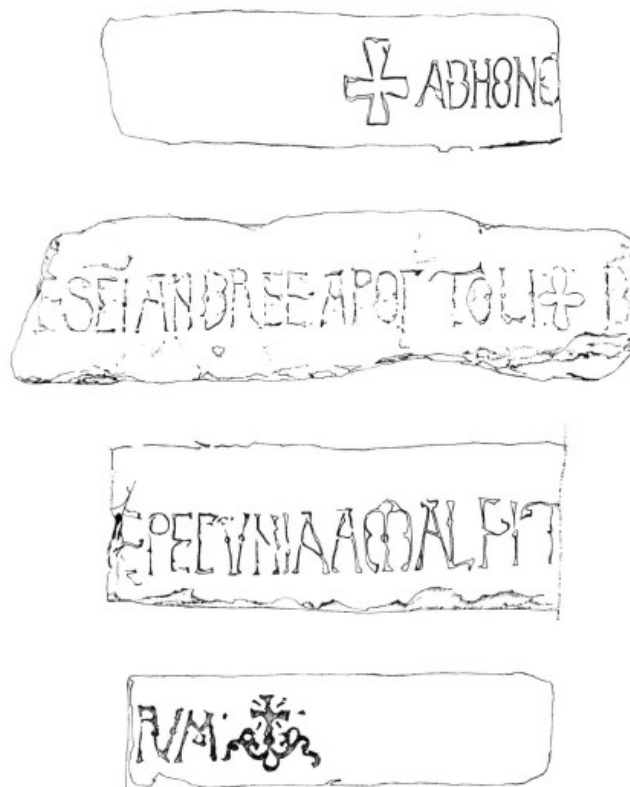 ✠ ABHONE
E SEI ANDREE APOSTOLI ✠ B
E PECVNIA AMALFIT
RVM